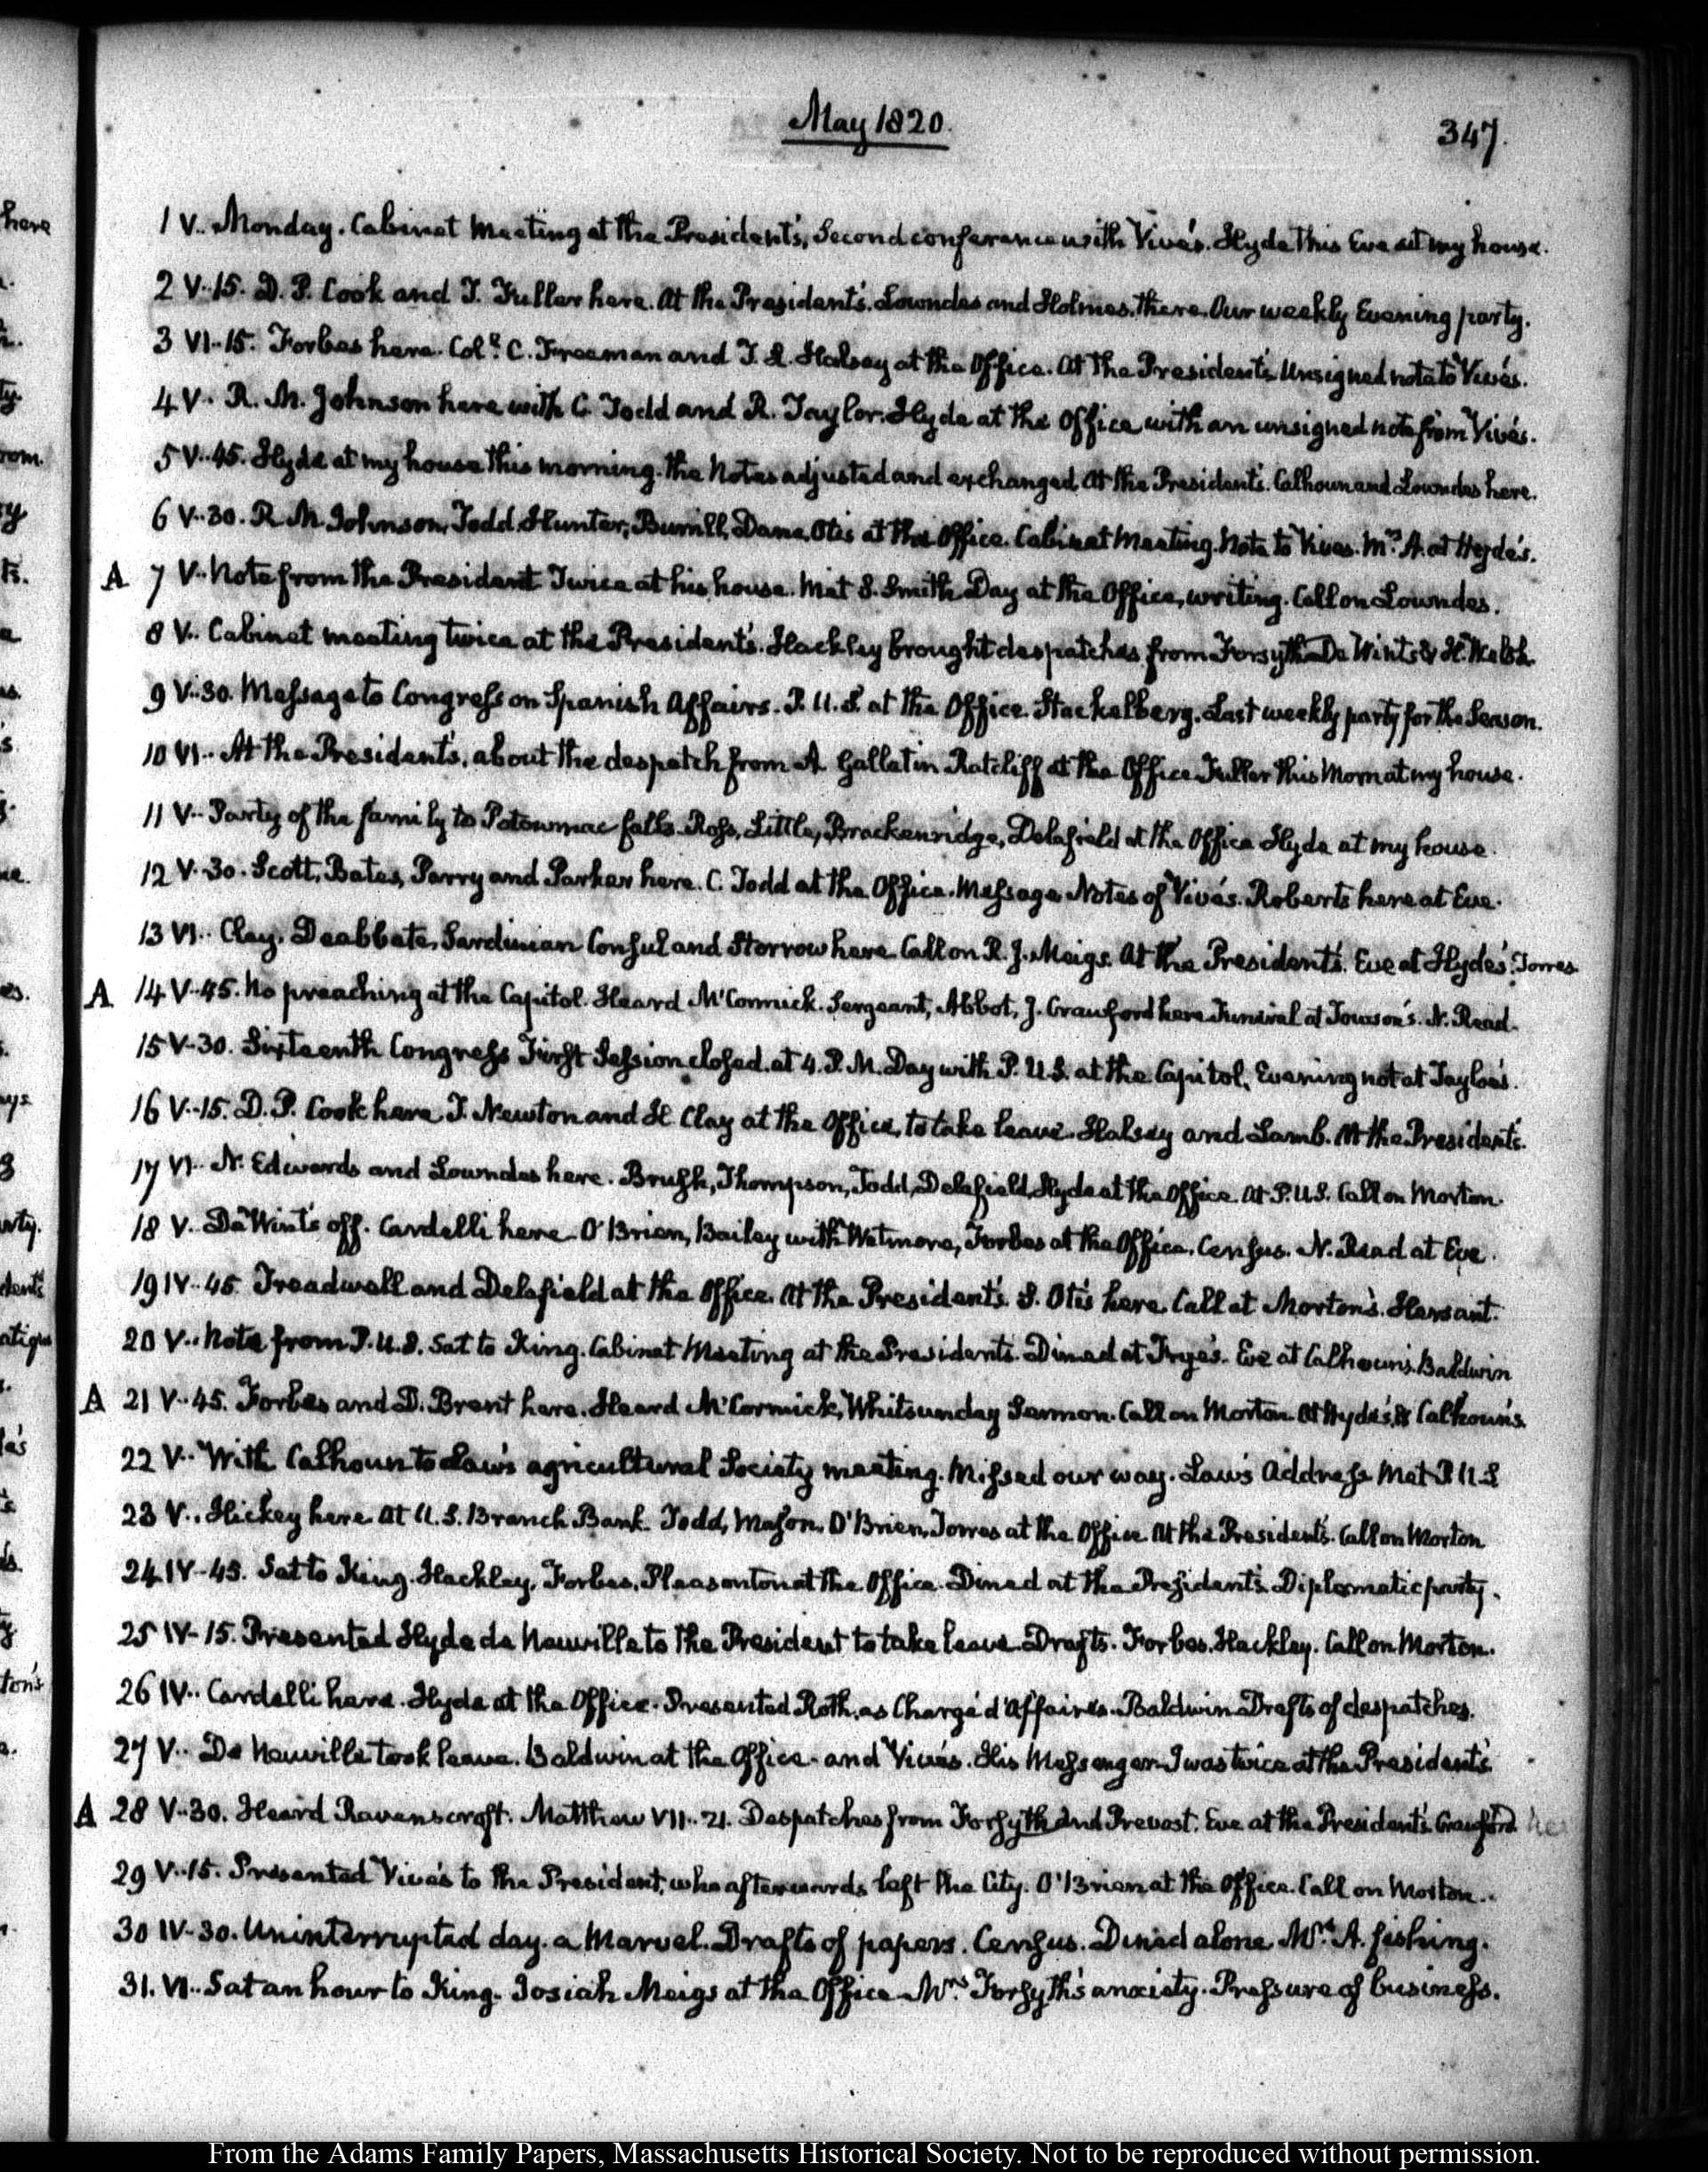 May 1820.
347.
1 V.. Monday. Cabinet Meeting at the President's, Second conference with Vivés. Hyde this Eve at my house.
2 V..15. D. P. Cook and T. Fuller here. At the President's. Lowndes and Holmes there. Our weekly Evening party.
3 VI..15. Forbes here. Coll. C. Freeman and T. L. Halsey at the Office. At the President's Unsigned note to Vivés.
4 V.. R. M. Johnson here with C. Todd and R. Taylor. Hyde at the Office with an unsigned note from Vivés.
5 V..45. Hyde at my house this morning. The Notes adjusted and exchanged. At the President's. Calhoun and Lowndes here.
6 V..30. R M Johnson, Todd, Hunter, Burrill, Dana, Otis at the Office. Cabinet Meeting. Note to Vives. Mrs A. at Hyde's.
A 7 V.. Note from the President Twice at his house. Met S. Smith Day at the Office, writing. Call on Lowndes.
8 V.. Cabinet meeting twice at the President's. Hackley brought despatches from Forsyth De Wints & H. Welsh.
9 V..30. Message to Congress on Spanish Affairs. P. U. S. at the Office. Stackelberg. Last weekly party for the Season.
10 VI.. At the President's, about the despatch from A Gallatin Ratcliff at the Office Fuller this Morn at my house.
11 V.. Party of the family to Potowmac falls. Ross, Little, Brackenridge, Delafield at the Office Hyde at my house.
12 V..30. Scott, Bates, Parry and Parker here. C. Todd at the Office. Message Notes of Vivés. Roberts here at Eve.
13 VI.. Clay. Deabbate, Sardinian Consul and Storrow here Call on R. J. Meigs. At the President's. Eve at Hyde's. Torres
A 14 V..45. No preaching at the Capitol. Heard McCormick. Sergeant, Abbot, J. Crawford here Funeral at Towson's. N. Read.
15 V..30. Sixteenth Congress First Session closed. at 4. P. M. Day with P. U. S. at the Capitol, Evening not at Tayloe's.
16 V..15. D. P. Cook here T. Newton and H. Clay at the Office, to take leave. Halsey and Lamb. At the President's.
17 VI.. N. Edwards and Lowndes here. Brush, Thompson, Todd, Delafield, Hyde at the Office. At P. U. S. Call on Morton.
18 V.. De Wint's off. Cardelli here. O'Brien, Bailey with Wetmore, Forbes at the Office. Census. N. Read at Eve.
19 IV..45. Treadwell and Delafield at the Office. At the President's. S. Otis here. Call at Morton's. Hersant.
20 V.. Note from P. U. S. Sat to King. Cabinet Meeting at the President's. Dined at Frye's. Eve at Calhoun's. Baldwin
A 21 V..45. Forbes and D. Brent here. Heard McCormick, Whitsunday Sermon. Call on Morton. At Hyde's, & Calhoun's.
22 V.. With Calhoun to Law's agricultural Society meeting. Missed our way. Law's Address. Met P U S
23 V.. Hickey here. At U. S. Branch Bank. Todd, Mason, O'Brien, Torres at the Office At the President's. Call on Morton
24 IV..45. Sat to King. Hackley, Forbes, Pleasonton at the Office. Dined at the President's Diplomatic party.
25 IV..15. Presented Hyde de Neuville to the President to take leave. Drafts. Forbes. Hackley. Call on Morton.
26 IV.. Cardelli here. Hyde at the Office. Presented Roth, as Chargé d'Affaires. Baldwin Drafts of despatches.
27 V.. De Neuville took leave. Baldwin at the Office and Vivés. His Messenger. I was twice at the President's.
A 28 V..30. Heard Ravenscroft. Matthew VII..21. Despatches from Forsyth and Prevost. Eve at the President's Crawford
29 V..15. Presented Vivés to the President, who afterwards left the City. O'Brien at the Office. Call on Morton..
30 IV..30. Uninterrupted day. a Marvel. Drafts of papers. Census. Dined alone Mrs. A. fishing.
31. VI.. Sat an hour to King. Josiah Meigs at the Office Mrs. Forsyth's anxiety. Pressure of business.
From the Adams Family Papers, Massachusetts Historical Society. Not to be reproduced without permission.